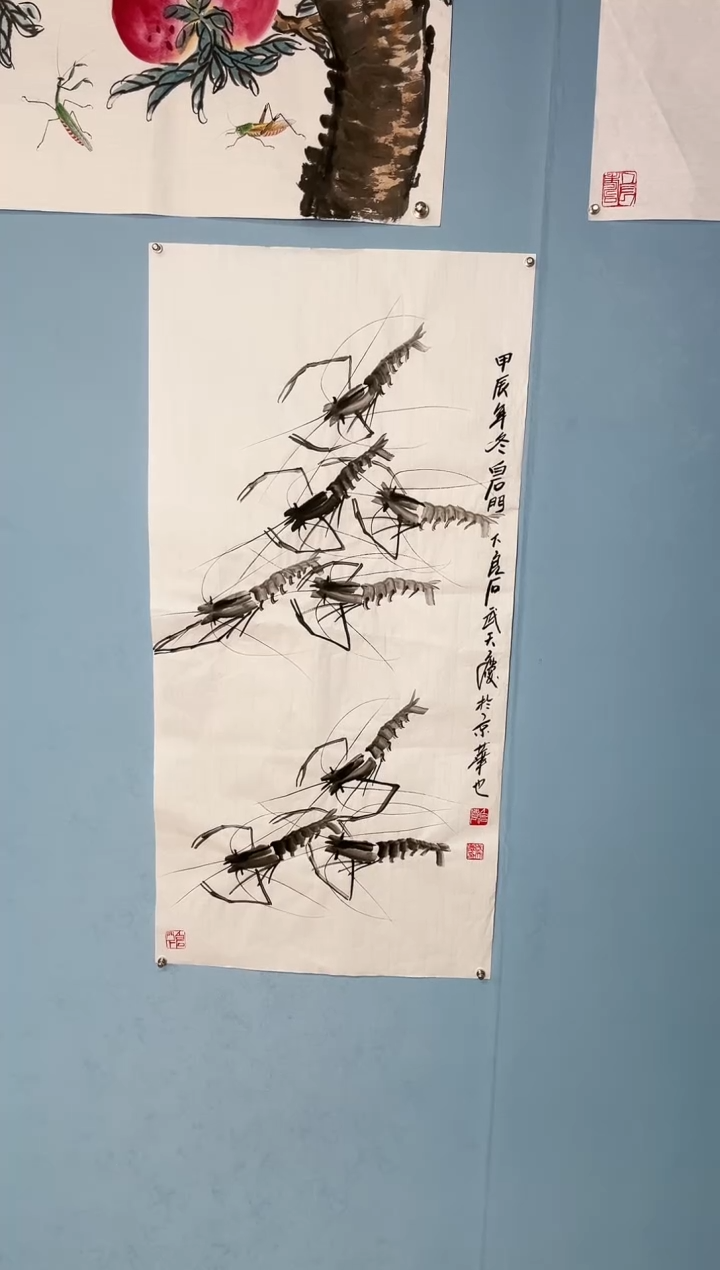 甲辰年冬白石門下良石武天慶於京華也